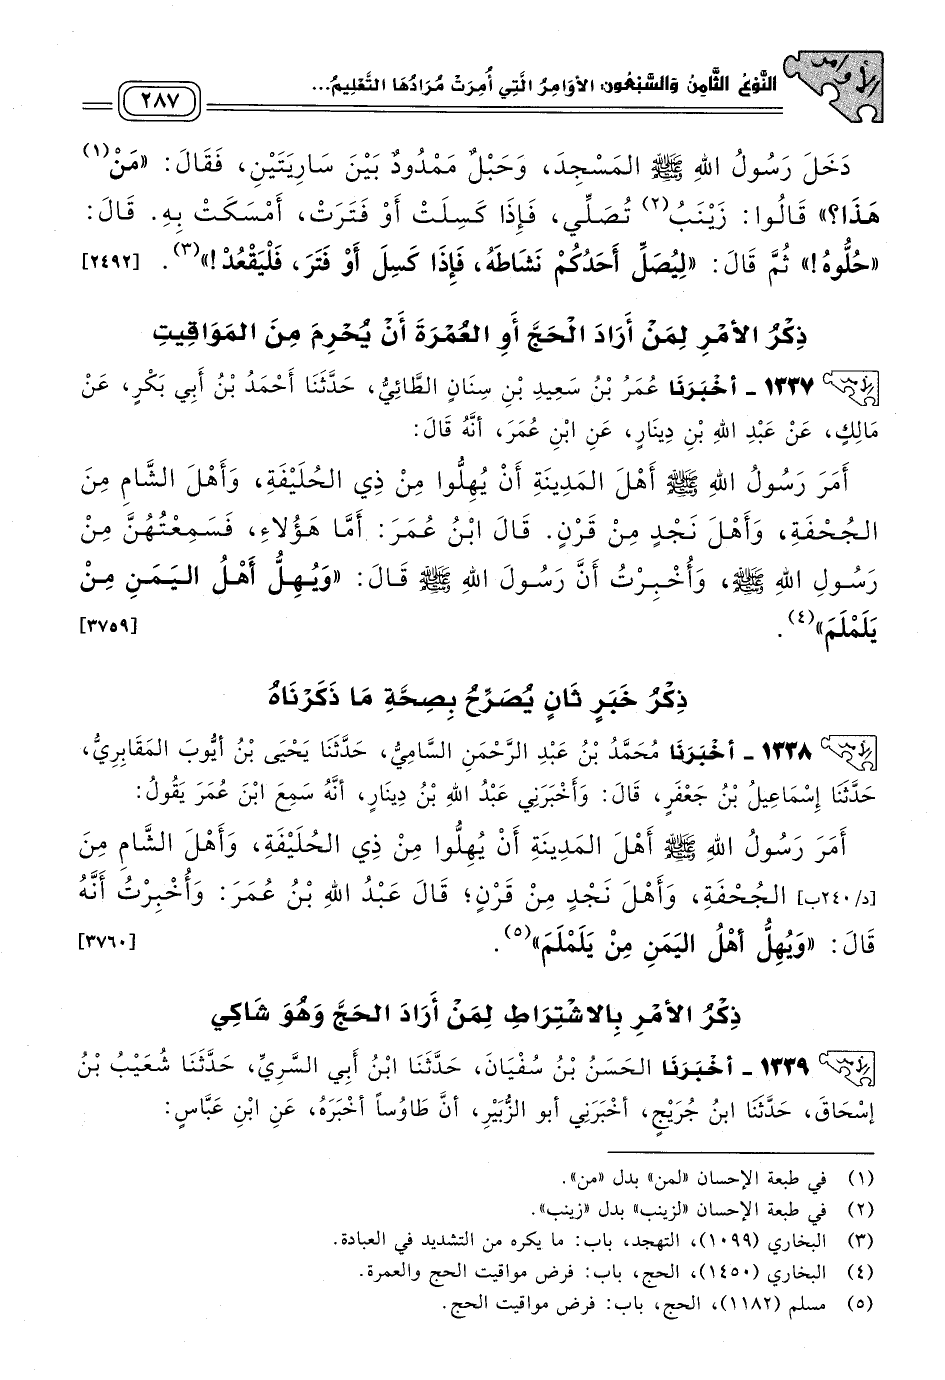 الأوامر
النَّوْعُ الثَّامِنُ وَالسَّبْعُون: الأوَامِرُ الَّتِي أُمِرَتْ مُرَادُهَا التَّعْلِيمُ...
٢٨٧
دَخَلَ رَسُولُ اللهِ ﷺ المَسْجِدَ، وَحَبْلٌ مَمْدُودٌ بَيْنَ سَارِيَتَيْنِ، فَقَالَ: «مَنْ(١)
هَذَا؟» قَالُوا: زَيْنَبُ(٢) تُصَلِّي، فَإِذَا كَسِلَتْ أَوْ فَتَرَتْ، أَمْسَكَتْ بِهِ. قَالَ:
«حُلُّوهُ!» ثُمَّ قَالَ: «لِيُصَلِّ أَحَدُكُمْ نَشَاطَهُ، فَإِذَا كَسِلَ أَوْ فَتَرَ، فَلْيَقْعُدْ!»(٣). [٢٤٩٢]
ذِكْرُ الأمْرِ لِمَنْ أَرَادَ الْحَجَّ أَوِ العُمْرَةَ أَنْ يُحْرِمَ مِنَ المَوَاقِيتِ
١٣٣٧ - أخْبَرَنَا عُمَرُ بْنُ سَعِيدِ بْنِ سِنَانٍ الطَّائِيُّ، حَدَّثَنَا أَحْمَدُ بْنُ أَبِي بَكْرٍ، عَنْ
مَالِكٍ، عَنْ عَبْدِ اللهِ بْنِ دِينَارٍ، عَنِ ابْنِ عُمَرَ، أَنَّهُ قَالَ:
أَمَرَ رَسُولُ اللهِ ﷺ أَهْلَ المَدِينَةِ أَنْ يُهِلُّوا مِنْ ذِي الحُلَيْفَةِ، وَأَهْلَ الشَّامِ مِنَ
الجُحْفَةِ، وَأَهْلَ نَجْدٍ مِنْ قَرْنٍ. قَالَ ابْنُ عُمَرَ: أَمَّا هَؤُلاءِ، فَسَمِعْتُهُنَّ مِنْ
رَسُولِ اللهِ ﷺ، وَأُخْبِرْتُ أَنَّ رَسُولَ اللهِ ﷺ قَالَ: «وَيُهِلُّ أَهْلُ اليَمَنِ مِنْ
يَلَمْلَمَ»(٤). [٣٧٥٩]
ذِكْرُ خَبَرٍ ثَانٍ يُصَرِّحُ بِصِحَّةِ مَا ذَكَرْنَاهُ
١٣٣٨ - أخْبَرَنَا مُحَمَّدُ بْنُ عَبْدِ الرَّحْمَنِ السَّامِيُّ، حَدَّثَنَا يَحْيَى بْنُ أَيُّوبَ المَقَابِرِيُّ،
حَدَّثَنَا إِسْمَاعِيلُ بْنُ جَعْفَرٍ، قَالَ: وَأَخْبَرَنِي عَبْدُ اللهِ بْنُ دِينَارٍ، أَنَّهُ سَمِعَ ابْنَ عُمَرَ يَقُولُ:
أَمَرَ رَسُولُ اللهِ ﷺ أَهْلَ المَدِينَةِ أَنْ يُهِلُّوا مِنْ ذِي الحُلَيْفَةِ، وَأَهْلَ الشَّامِ مِنَ
[د/٢٤٠ب] الجُحْفَةِ، وَأَهْلَ نَجْدٍ مِنْ قَرْنٍ؛ قَالَ عَبْدُ اللهِ بْنُ عُمَرَ: وَأُخْبِرْتُ أَنَّهُ
قَالَ: «وَيُهِلُّ أَهْلُ اليَمَنِ مِنْ يَلَمْلَمَ»(٥). [٣٧٦٠]
ذِكْرُ الأمْرِ بِالاشْتِرَاطِ لِمَنْ أَرَادَ الحَجَّ وَهُوَ شَاكِي
١٣٣٩ - أخْبَرَنَا الحَسَنُ بْنُ سُفْيَانَ، حَدَّثَنَا ابْنُ أَبِي السَّرِيِّ، حَدَّثَنَا شُعَيْبُ بْنُ
إسْحَاقَ، حَدَّثَنَا ابنُ جُرَيْجٍ، أخْبَرَنِي أبو الزُّبَيْرِ، أنَّ طَاوُساً أخْبَرَهُ، عَنِ ابْنِ عَبَّاسٍ:
(١) في طبعة الإحسان «لمن» بدل «من».
(٢) في طبعة الإحسان «لزينب» بدل «زينب».
(٣) البخاري (١٠٩٩)، التهجد، باب: ما يكره من التشديد في العبادة.
(٤) البخاري (١٤٥٠)، الحج، باب: فرض مواقيت الحج والعمرة.
(٥) مسلم (١١٨٢)، الحج، باب: فرض مواقيت الحج.